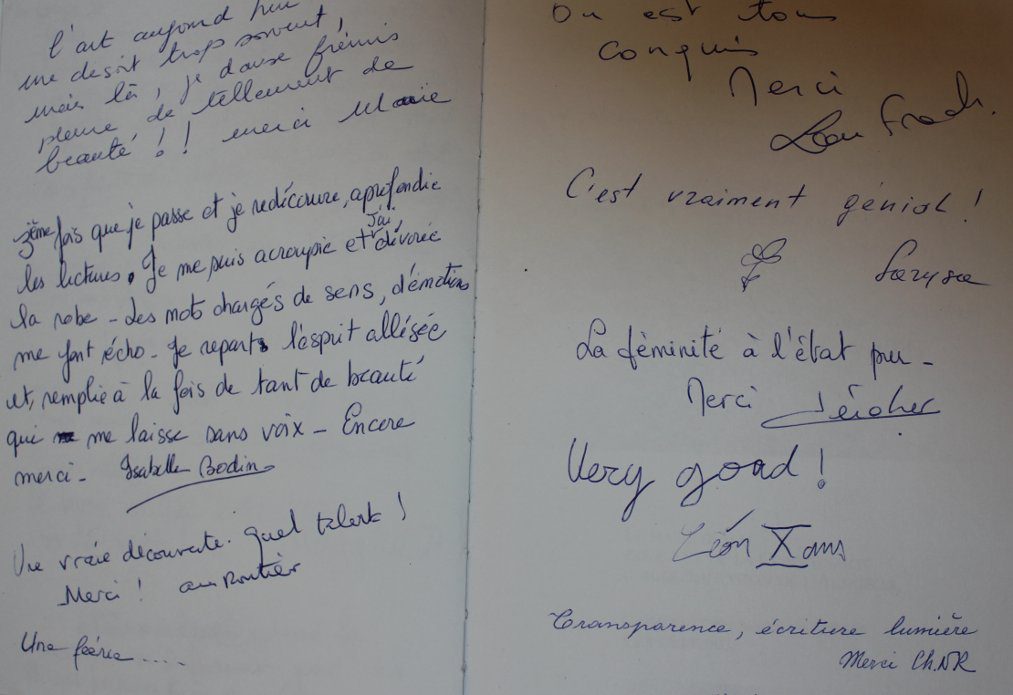 l'art aujourd'hui
me desoit trop souvent,
mais là, je danse frémis
pleure de tellement de
beauté !! merci Marie
3ème fois que je passe et je redécouvre, aprofondie
les lectures. Je me suis accroupie et j'ai dévorée
la robe - des mots chargés de sens, d'émotions
me font écho - Je repars l'esprit allégée
et, remplie à la fois de tant de beauté
qui me laisse sans voix - Encore
merci - Isabelle Bodin
Une vraie découverte. Quel talent !
Merci !
Une féérie ....
On est tous
conquis
Merci
C'est vraiment génial !
Laryssa
La féminité à l'état pur -
Merci
Very good !
Léon X ans
Transparence, écriture lumière
Merci Ch.NR